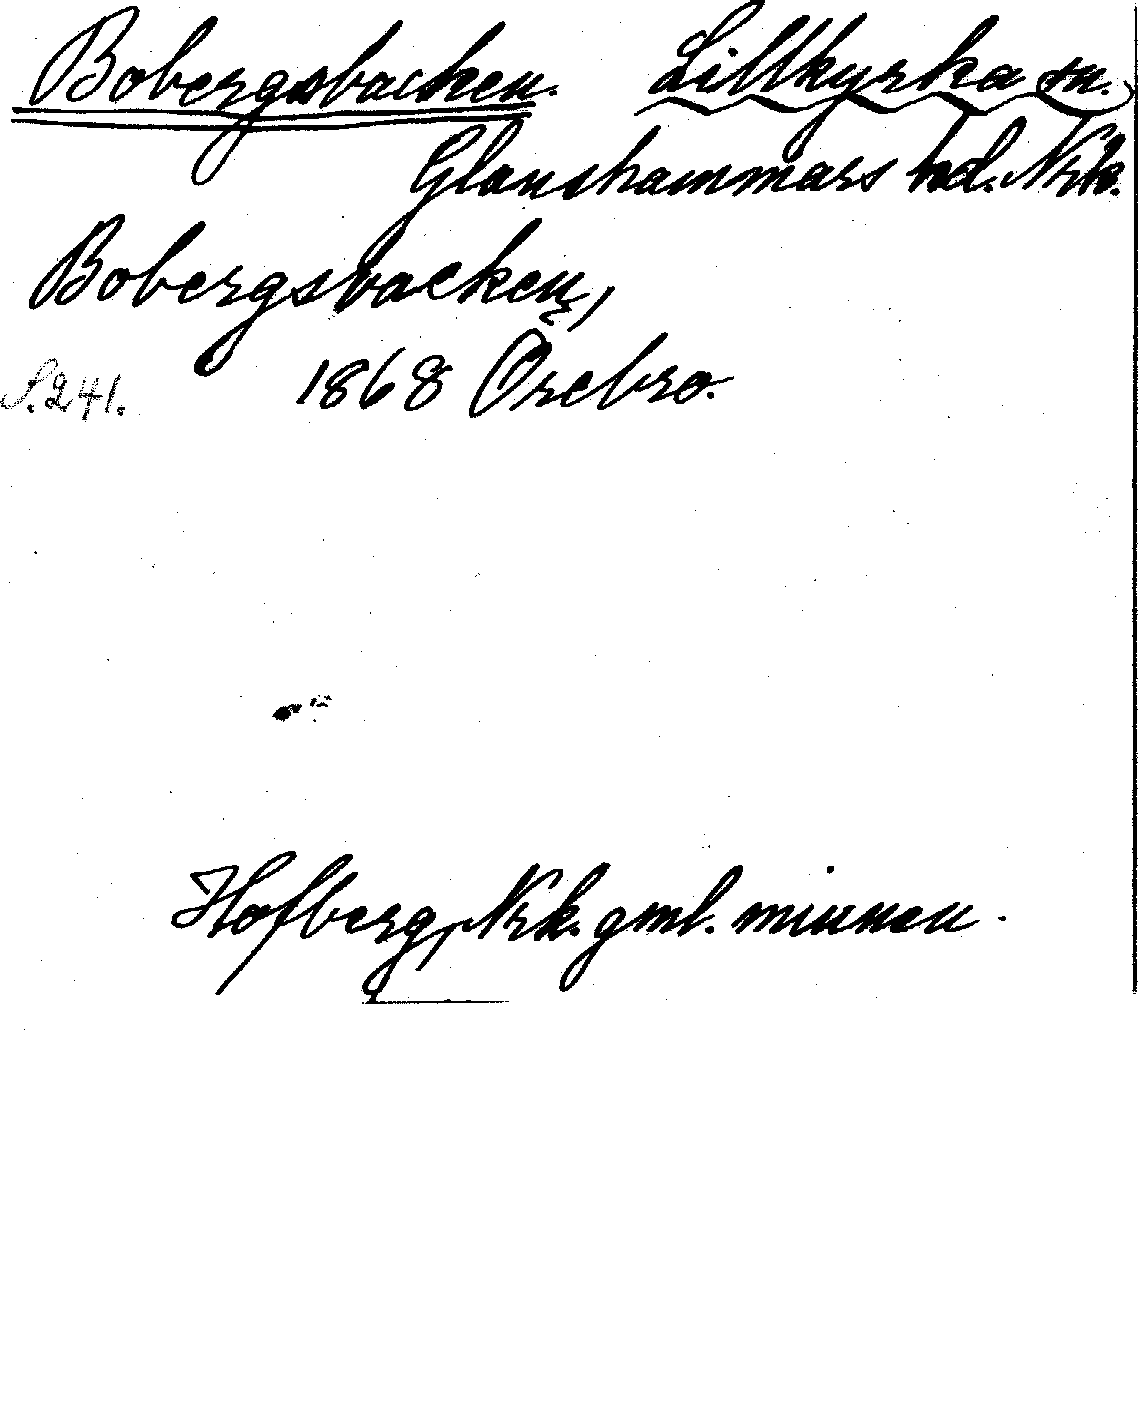 Bobergsbacken. Lillkyrka sn.
Glanshammars hd. Nrk.
Bobergsbacken,
S. 241. 1868 Örebro.
Hofberg, Nrk. gml. minnen.